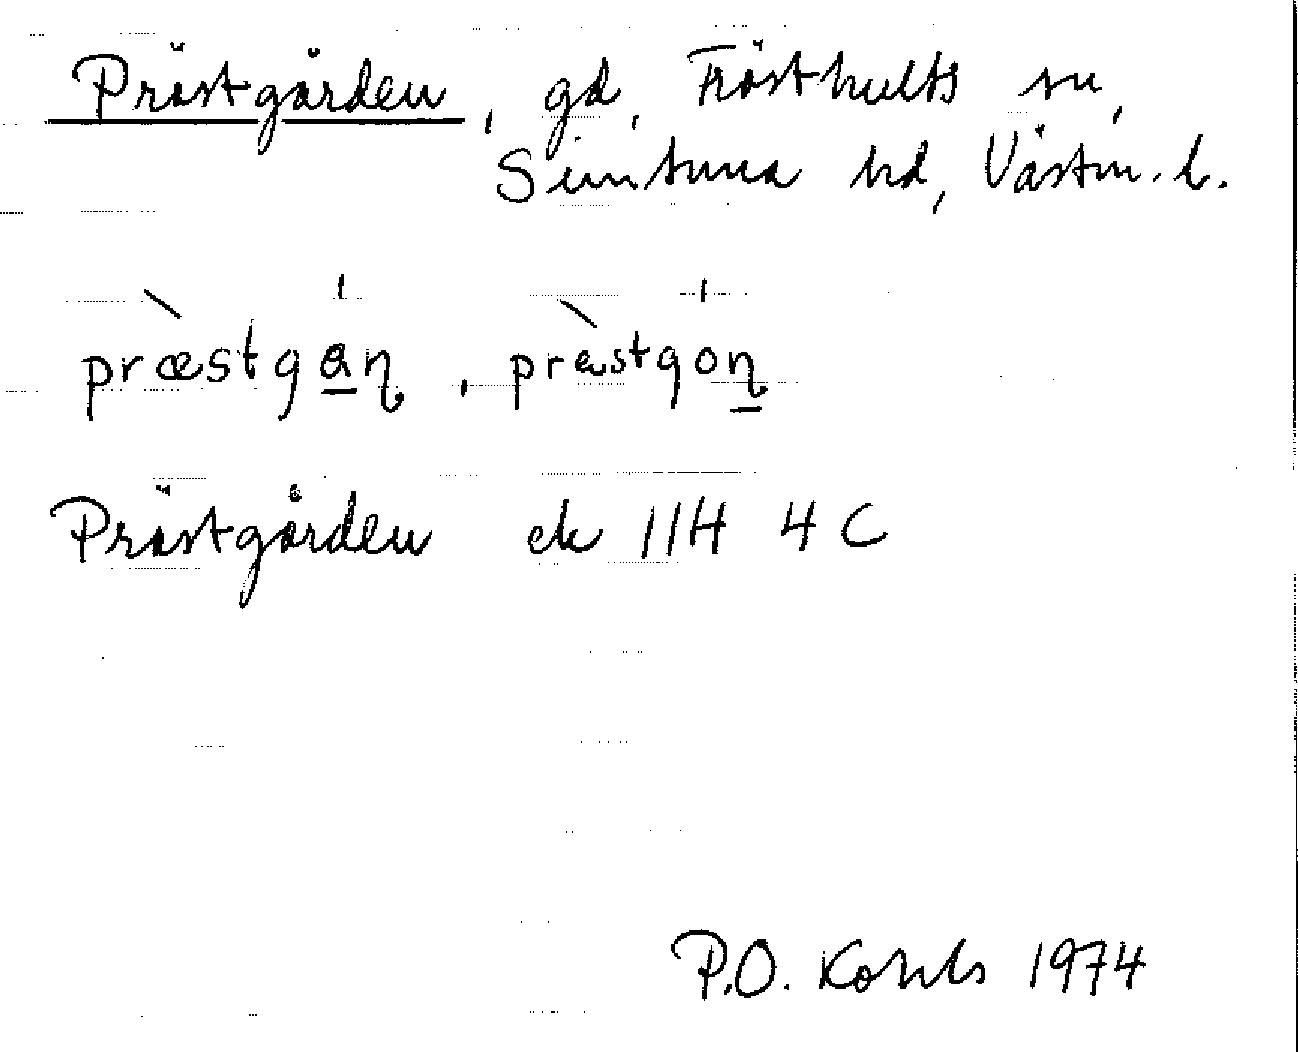 Prästgården, gd, Frösthults sn,
Simtuna hd, Västm. l.
præstgan, præstgon
Prästgården ek 11H 4C
P.O. Kohls 1974